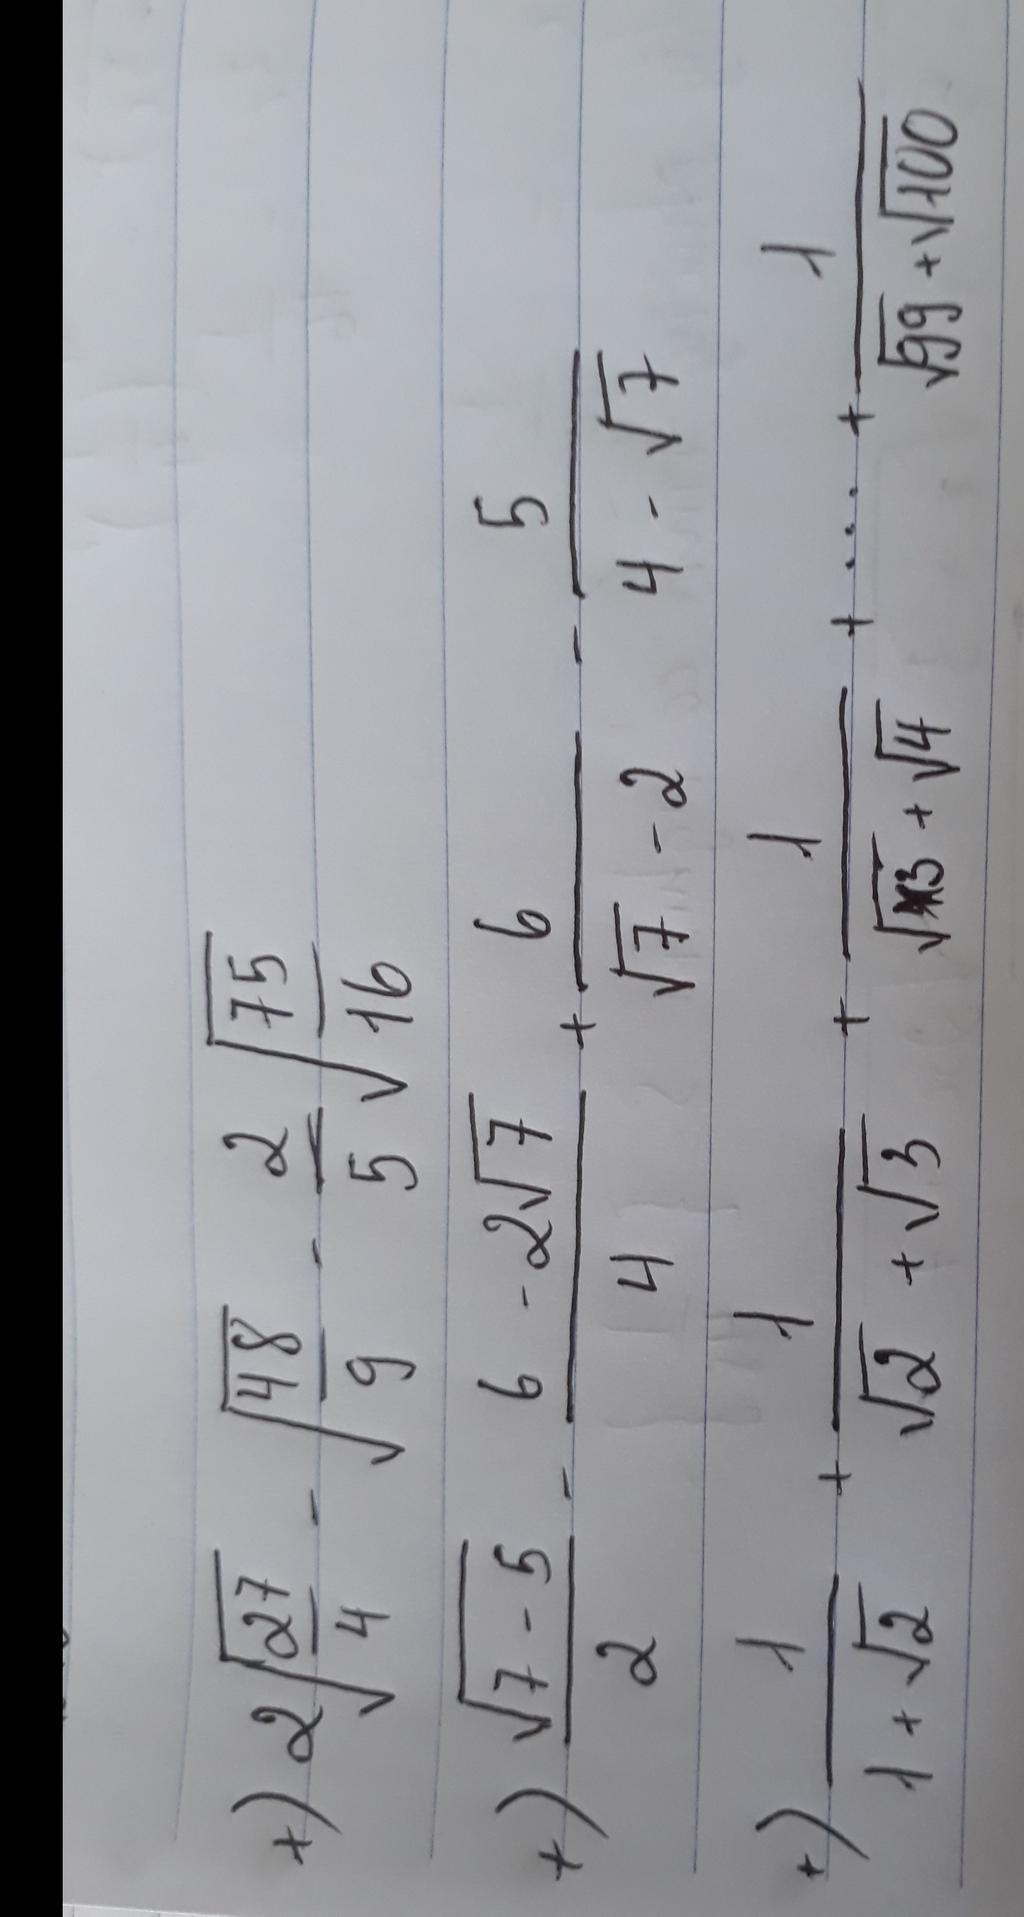 +) 2√(27/4) - √(48/9) - 2/5 √(75/16)
+) √(7-5)/2 - (6 - 2√7)/4 + 6/(√7 - 2) - 5/(4 - √7)
+) 1/(1 + √2) + 1/(√2 + √3) + 1/(√3 + √4) + .... + 1/(√99 + √100)